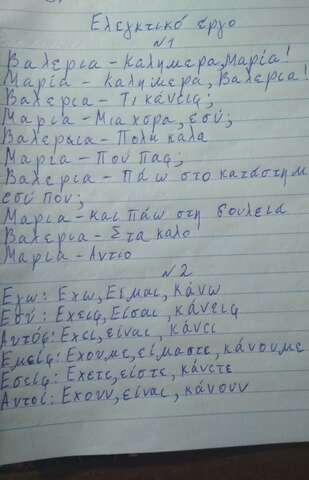 Ελεγκτικό έργο
№1
Βαλερια - Καλημερα, Μαρία!
Μαρία - Καλημερα, Βαλερια!
Βαλερια - Τι κάνεις;
Μαρια - Μια χορα, εσύ;
Βαλερια - Πολη καλα
Μαρια - Που πας;
Βαλερια - Πάω στο κατάστημ
εσύ που;
Μαρια - και πάω στη δουλειά
Βαλερια - Στα καλο
Μαρια - Αντιο
№2
Εγω: Εχω, Ειμαι, κάνω
Εσύ: Εχεις, Είσαι, κάνεις
Αυτός: Εχει, είναι, κάνει
Εμείς: Εχουμε, είμαστε, κάνουμε
Εσείς: Εχετε, είστε, κάνετε
Αυτοί: Εχουν, είναι, κάνουν